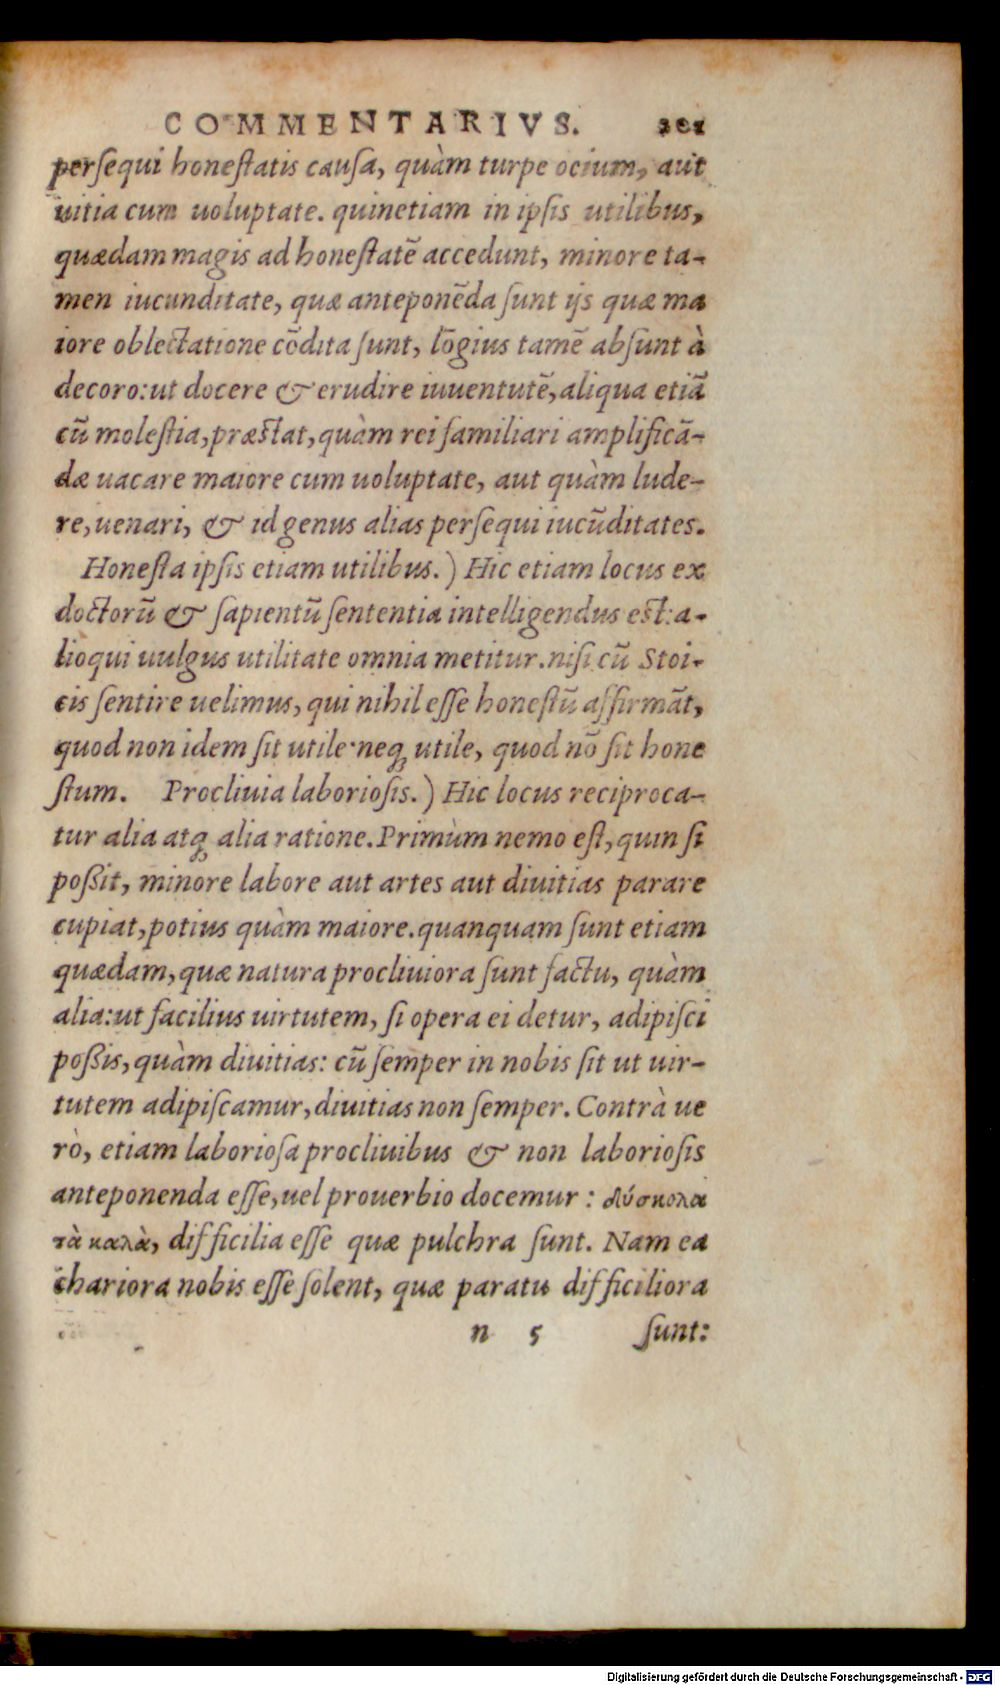 COMMENTARIVS. 201
perſequi honeſtatis cauſa, quàm turpe ocium, aut
uitia cum uoluptate. quinetiam in ipſis utilibus,
quædam magis ad honeſtatẽ accedunt, minore ta-
men iucunditate, quæ anteponẽda ſunt ijs quæ ma
iore oblectatione cõdita ſunt, lõgius tamẽ abſunt à
decoro: ut docere & erudire iuuentutẽ, aliqua etiã
cũ moleſtia, præstat, quàm rei familiari amplificã-
dæ uacare maiore cum uoluptate, aut quàm lude-
re, uenari, & id genus alias perſequi iucũditates.
Honeſta ipſis etiam utilibus.) Hic etiam locus ex
doctorũ & ſapientũ ſententia intelligendus est: a-
lioqui uulgus utilitate omnia metitur. niſi cũ Stoi-
cis ſentire uelimus, qui nihil eſſe honeſtũ affirmãt,
quod non idem ſit utile: neq; utile, quod nõ ſit hone
ſtum. Procliuia laborioſis.) Hic locus reciproca-
tur alia atq; alia ratione. Primùm nemo eſt, quin ſi
poßit, minore labore aut artes aut diuitias parare
cupiat, potius quàm maiore. quanquam ſunt etiam
quædam, quæ natura procliuiora ſunt factu, quàm
alia: ut facilius uirtutem, ſi opera ei detur, adipiſci
poßis, quàm diuitias: cũ ſemper in nobis ſit ut uir-
tutem adipiſcamur, diuitias non ſemper. Contrà ue
rò, etiam laborioſa procliuibus & non laborioſis
anteponenda eſſe, uel prouerbio docemur: δύσκολα
τὰ καλὰ, difficilia eſſe quæ pulchra ſunt. Nam ea
chariora nobis eſſe ſolent, quæ paratu difficiliora
n 5 ſunt:
Digitalisierung gefördert durch die Deutsche Forschungsgemeinschaft - DFG